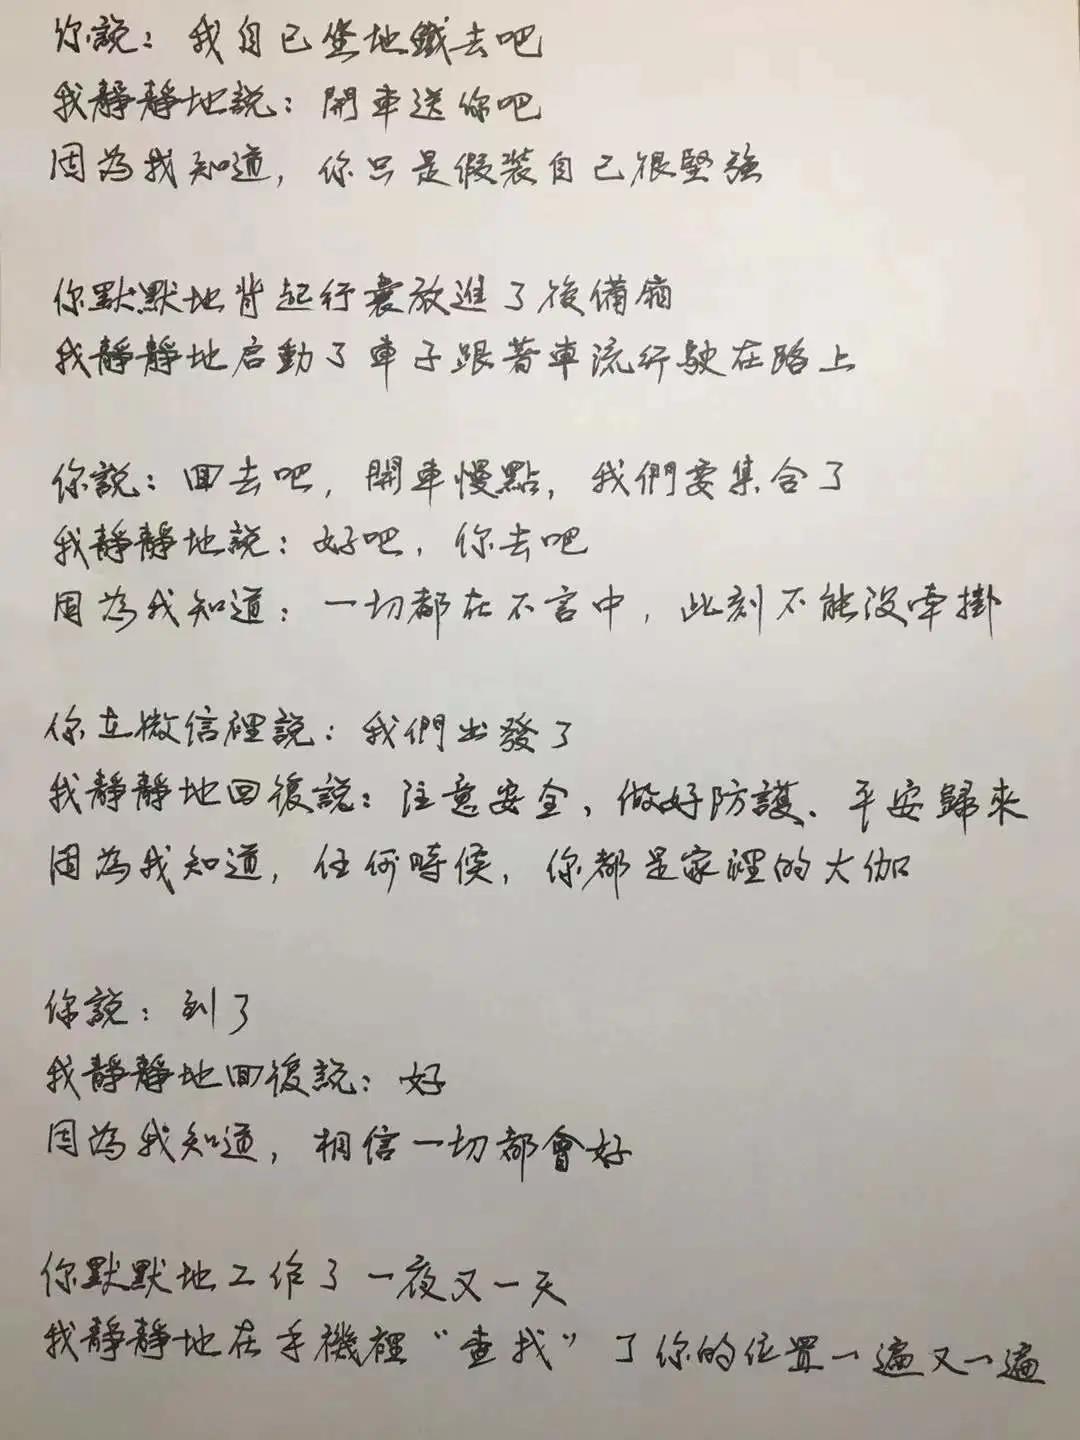 你說：我自已坐地鐵去吧
我靜靜地說：開車送你吧
因為我知道，你只是假裝自己很堅強
你默默地背起行囊放進了後備廂
我靜靜地启動了車子跟著車流行駛在路上
你說：回去吧，開車慢點，我們要集合了
我靜靜地說：好吧，你去吧
因為我知道：一切都在不言中，此刻不能没牽掛
你在微信裡說：我們出發了
我靜靜地回復說：注意安全、做好防護、平安歸來
因為我知道，任何時候，你都是家裡的大伽
你說：到了
我靜靜地回復說：好
因為我知道，相信一切都會好
你默默地工作了一夜又一天
我靜靜地在手機裡“查找”了你的位置一遍又一遍